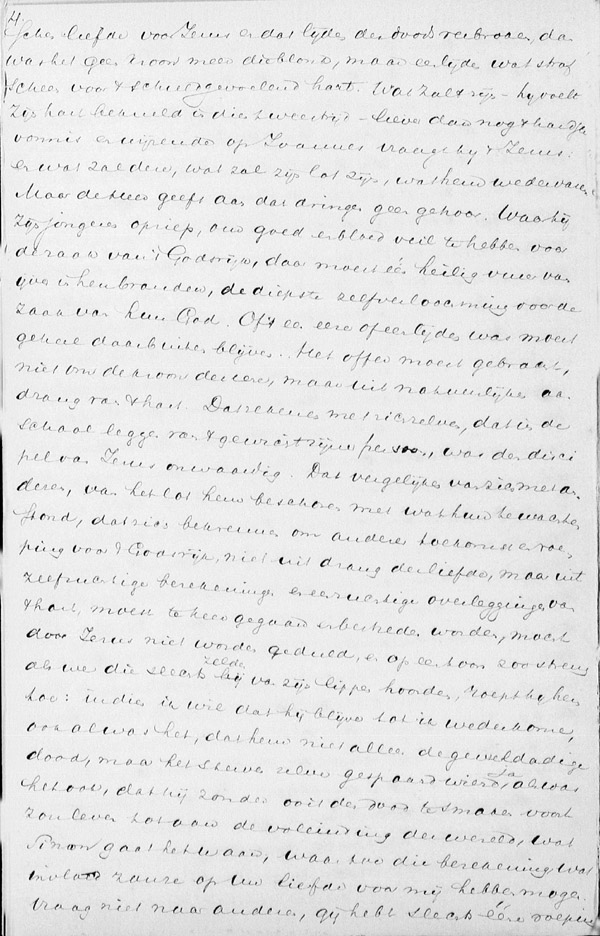 4.
liefde voor Jezus er dat lijden den dood verbroken, dan
was het geen kroon meer die blonk, maar een lijden wat straf
scheen voor 't schuldgevoelend hart. Wat zal 't zijn – hy voelt
Zijn hart bekneld in dien tweestrijd – liever dan nog 't hardste
vonnis en wijzende op Joannes vraagt hy 't Jezus:
en wat zal deze, wat zal zijn lot zijn, wat hem wedervaren
Maar de Heer geeft aan dat dringen geen gehoor. Waar hij
Zijn jongeren opriep, om goed en bloed veil te hebben voor
de zaak van 't Godsrijk, daar moest één heilig vuur van
ijver in hen branden, de diepste zelfverloochening voor de
zaak van hun God. Of 't een eere of een lijden was moest
geheel daarbuiten blijven. Het offer moest gebracht,
niet om de kroon der eere, maar uit natuurlijken aan
drang van 't hart. Dat rekenen met zich zelven, dat in de
schaal leggen van 't gewicht zijner persoon, was den disci
pel van Jezus onwaardig. Dat vergelijken van zich met an
deren, van het lot hem beschoren met wat hun te wachten
stond, dat zich bekommeren om anderer toekomst en roe
ping voor 't Godsrijk, niet uit drang der liefde, maar uit
zelfzuchtige berekeningen en eerzuchtige overleggingen van
't hart, moest te keer gegaan en bestreden worden, moest
door Jezus niet worden geduld, en op een toon zoo streng
als we die slechts zelden van zijn lippen hoorden, roept hy hem
toe: indien ik wil dat hij blijve tot ik wederkome,
ook al was het, dat hem niet alleen de geweldadige
dood, maar het sterven zelve gespaard wierd, ja al was
het ook, dat hij zonder ooit den dood te smaken voort
zou leven tot aan de voleinding der wereld, wat
Simon gaat het u aan, waartoe die berekening wat
invloed zou ze op uw liefde voor mij hebben mogen.
Vraag niet naar anderen, gij hebt slechts ééne roeping